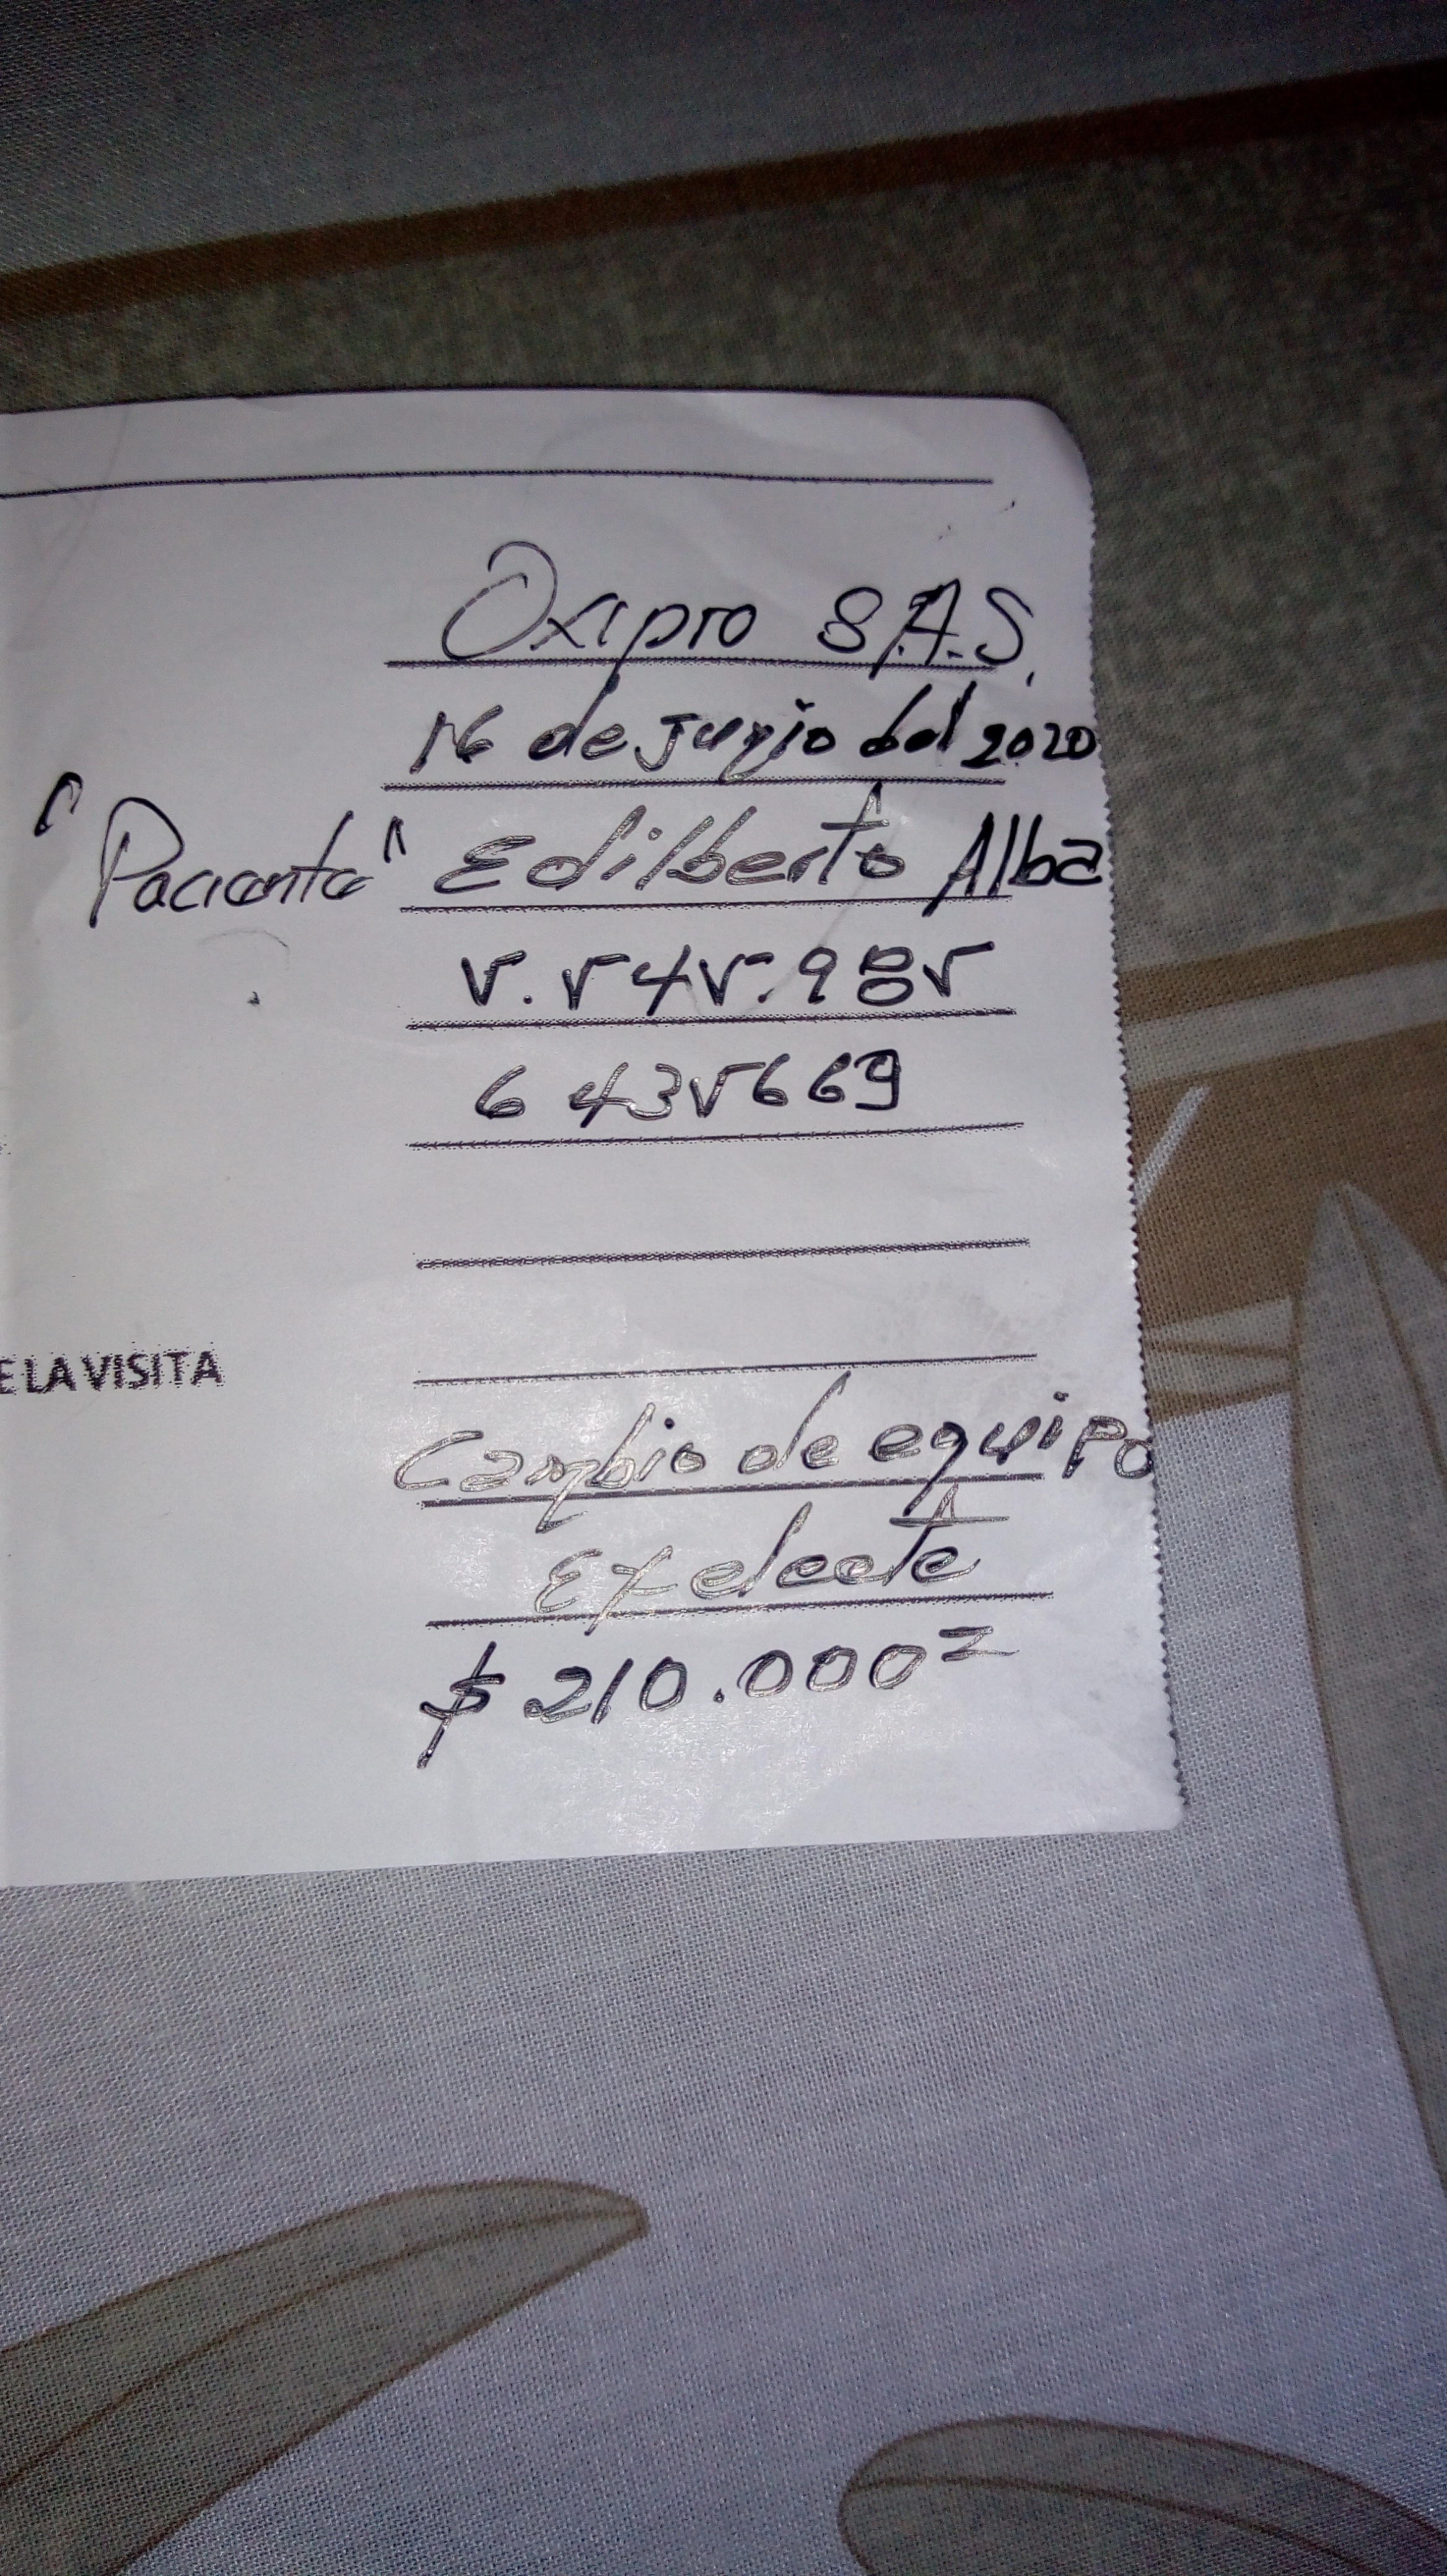 Oxipro S.A.S.
16 de Junio del 2020
"Paciente" Edilberto Alba
5.545.985
6435669
E LA VISITA
Cambio de equipo
Exelente
$ 210.000=